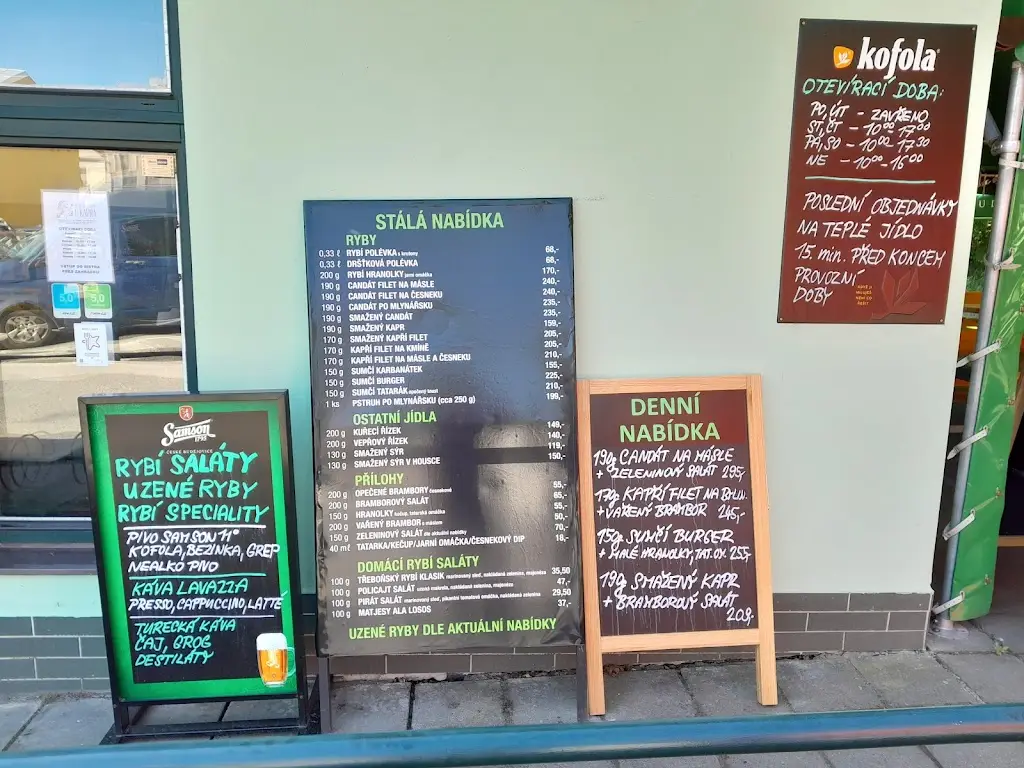 Samson
1795
ČESKÉ BUDĚJOVICE
RYBÍ SALÁTY
UZENÉ RYBY
RYBÍ SPECIALITY
PIVO SAMSON 11°
KOFOLA, BEZINKA, GREP
NEALKO PIVO
KÁVA LAVAZZA
PRESSO, CAPPUCCINO, LATTÉ
TURECKÁ KÁVA
ČAJ, GROG
DESTILÁTY
STÁLÁ NABÍDKA
RYBY
0,33 ℓ RYBÍ POLÉVKA s krutony 68,-
0,33 ℓ DRŠŤKOVÁ POLÉVKA 68,-
200 g RYBÍ HRANOLKY jarní omáčka 170,-
190 g CANDÁT FILET NA MÁSLE 240,-
190 g CANDÁT FILET NA ČESNEKU 240,-
190 g CANDÁT PO MLYNÁŘSKU 235,-
190 g SMAŽENÝ CANDÁT 235,-
190 g SMAŽENÝ KAPR 159,-
170 g SMAŽENÝ KAPŘÍ FILET 205,-
170 g KAPŘÍ FILET NA KMÍNĚ 205,-
170 g KAPŘÍ FILET NA MÁSLE A ČESNEKU 210,-
150 g SUMČÍ KARBANÁTEK 155,-
150 g SUMČÍ BURGER 225,-
150 g SUMČÍ TATARÁK opečený toast 210,-
1 ks PSTRUH PO MLYNÁŘSKU (cca 250 g) 199,-
OSTATNÍ JÍDLA
200 g KUŘECÍ ŘÍZEK 149,-
200 g VEPŘOVÝ ŘÍZEK 140,-
130 g SMAŽENÝ SÝR 119,-
130 g SMAŽENÝ SÝR V HOUSCE 150,-
PŘÍLOHY
200 g OPEČENÉ BRAMBORY česnekové 55,-
200 g BRAMBOROVÝ SALÁT 65,-
150 g HRANOLKY kečup, tatarská omáčka 55,-
200 g VAŘENÝ BRAMBOR s máslem 50,-
150 g ZELENINOVÝ SALÁT dle aktuální nabídky 70,-
40 ml TATARKA/KEČUP/JARNÍ OMÁČKA/ČESNEKOVÝ DIP 18,-
DOMÁCÍ RYBÍ SALÁTY
100 g TŘEBOŇSKÝ RYBÍ KLASIK marinovaný sleď, nakládaná zelenina, majonéza 35,50
100 g POLICAJT SALÁT uzená makrela, nakládaná zelenina, majonéza 47,-
100 g PIRÁT SALÁT marinovaný sleď, pikantní tomatová omáčka, nakládaná zelenina 29,50
100 g MATJESY ALA LOSOS 37,-
UZENÉ RYBY DLE AKTUÁLNÍ NABÍDKY
DENNÍ
NABÍDKA
190g CANDÁT NA MÁSLE
+ ZELENINOVÝ SALÁT 295,-
170g KAPŘÍ FILET NA BYLIN.
+ VAŘENÝ BRAMBOR 245,-
150g SUMČÍ BURGER
+ MALÉ HRANOLKY, TAT.OM. 255,-
190g SMAŽENÝ KAPR
+ BRAMBOROVÝ SALÁT
209,-
kofola
OTEVÍRACÍ DOBA:
PO, ÚT - ZAVŘENO
ST, ČT - 10⁰⁰-17⁰⁰
PÁ, SO - 10⁰⁰-17³⁰
NE - 10⁰⁰-16⁰⁰
POSLEDNÍ OBJEDNÁVKY
NA TEPLÉ JÍDLO
15. min. PŘED KONCEM
PROVOZNÍ
DOBY